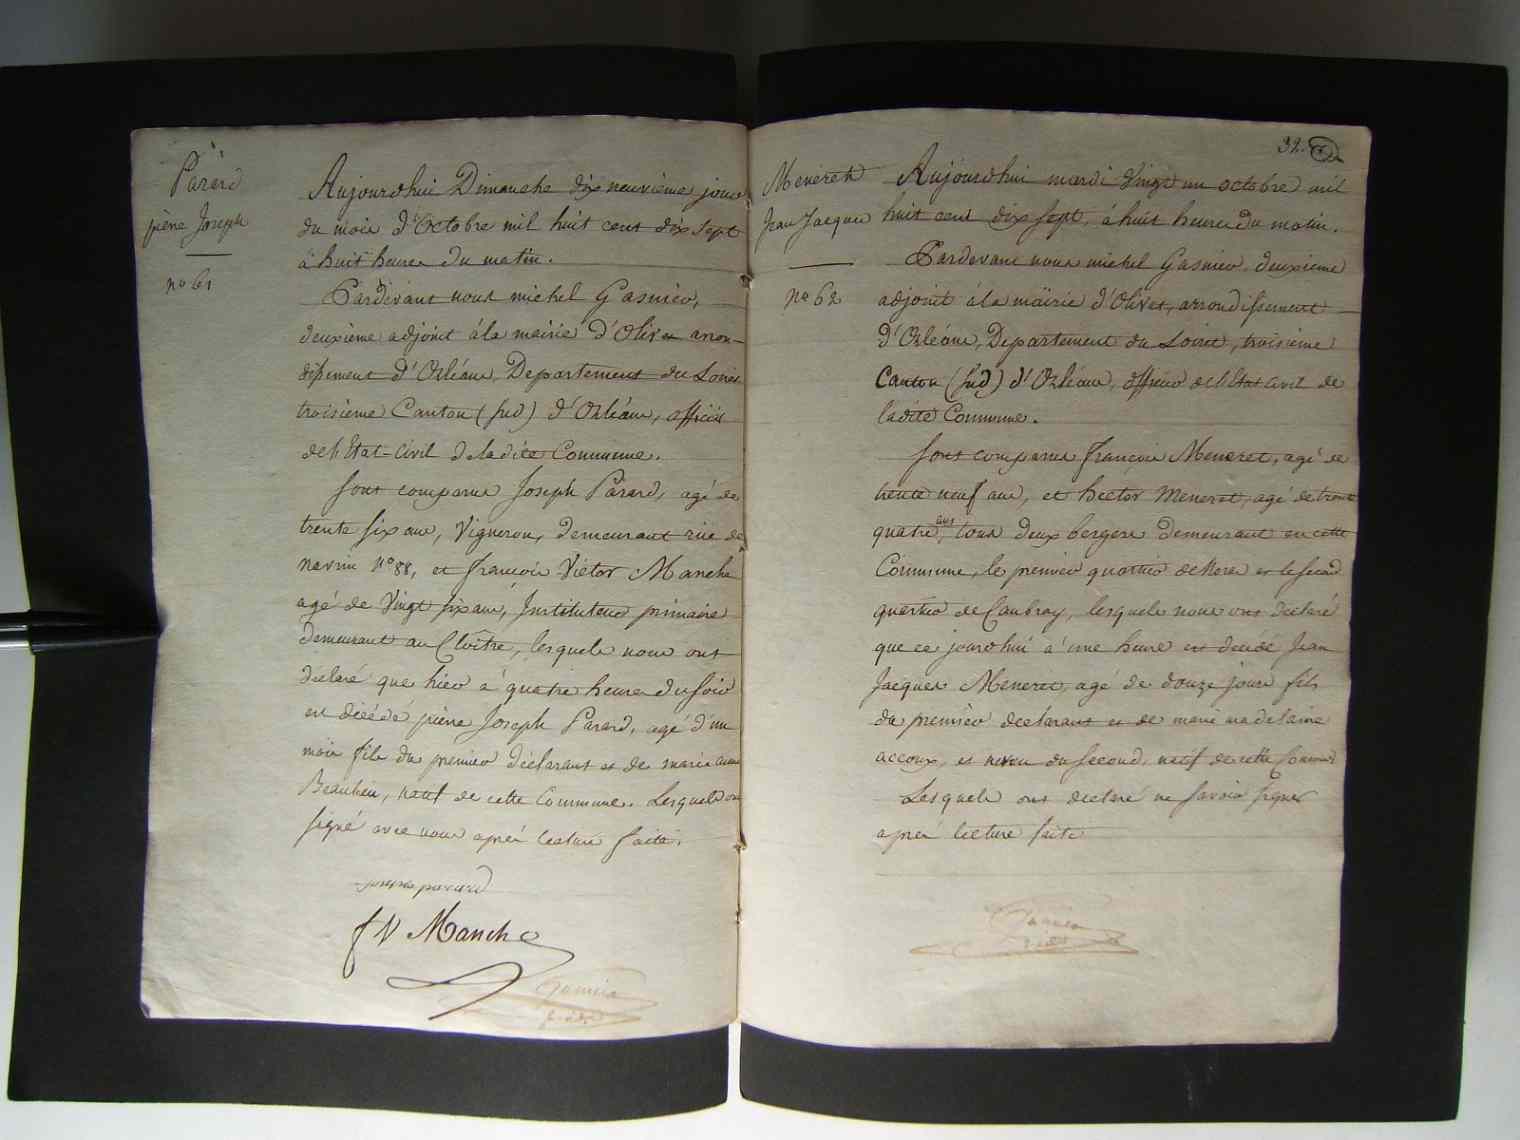 Parard
pierre Joseph
no 61
Aujourdhui Dimanche dix neuvième jour
du mois d'Octobre mil huit cent dix sept
à huit heures du matin.
Pardevant nous michel Gasnier,
deuxième adjoint à la mairie d'Olivet arron-
dissement d'Orléans, Departement du Loiret
troisième Canton (sud) d'Orléans, officier
de l'Etat-Civil de ladite Commune.
Sont comparus Joseph Parard, agé de
trente six ans, Vigneron, demeurant rue de
no 88, et francois Victor Manche
agé de Vingt six ans, Instituteur primaire
demeurant au Cloître, lesquels nous ont
déclaré que hier à quatre heures du soir
est décédé pierre Joseph Parard, agé d'un
mois fils du premier déclarant et de marie anne
Beaulieu, natif de cette Commune. Lesquels ont
signé avec nous après lecture faite.
joseph parard
f V Manche
Gasnier
Meneret
Jean Jacques
no 62
32.
Aujourdhui mardi Vingt un octobre mil
huit cent dix sept, à huit heures du matin.
Pardevant nous michel Gasnier, deuxième
adjoint à la mairie d'Olivet, arrondissement
d'Orléans, Departement du Loiret, troisième
Canton (sud) d'Orléans, officier de l'Etat Civil de
ladite Commune.
Sont comparus françois Meneret, agé de
trente neuf ans, et hector Meneret, agé de trente
quatre ans, tous deux bergers demeurant en cette
Commune, le premier quartier de et le second
quartier de Caubray, lesquels nous ont déclaré
que ce jourdhui à une heure est décédé Jean
Jacques Meneret, agé de douze jours fils
du premier déclarant et de marie madelaine
accoux, et neveu du second, natif de cette Commune
Lesquels ont declaré ne savoir signer
après lecture faite
Gasnier